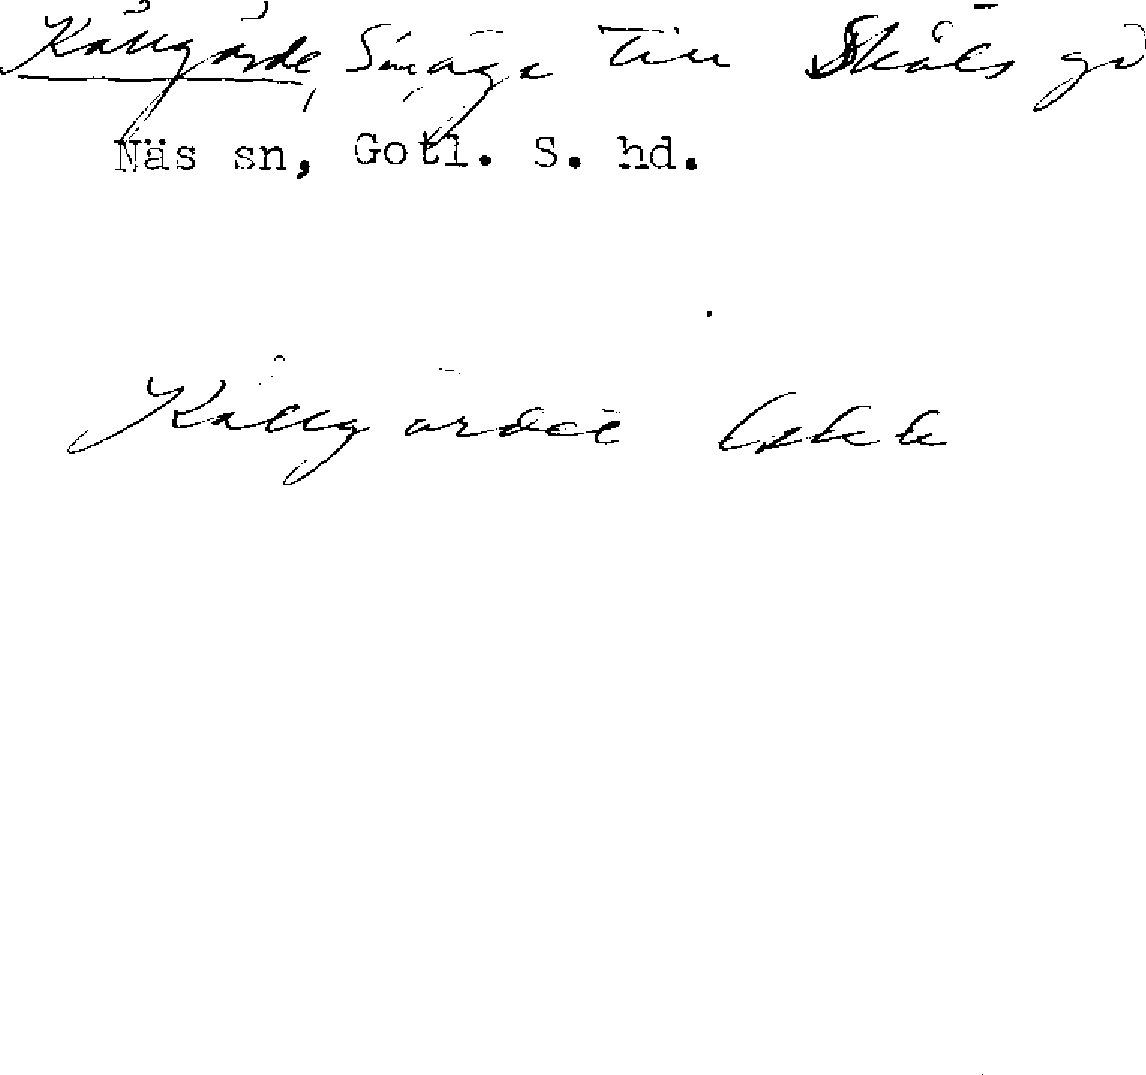 Kållgårde, Småge till Skåls gd
Näs sn, Gotl. S. hd.
Kållgårdet